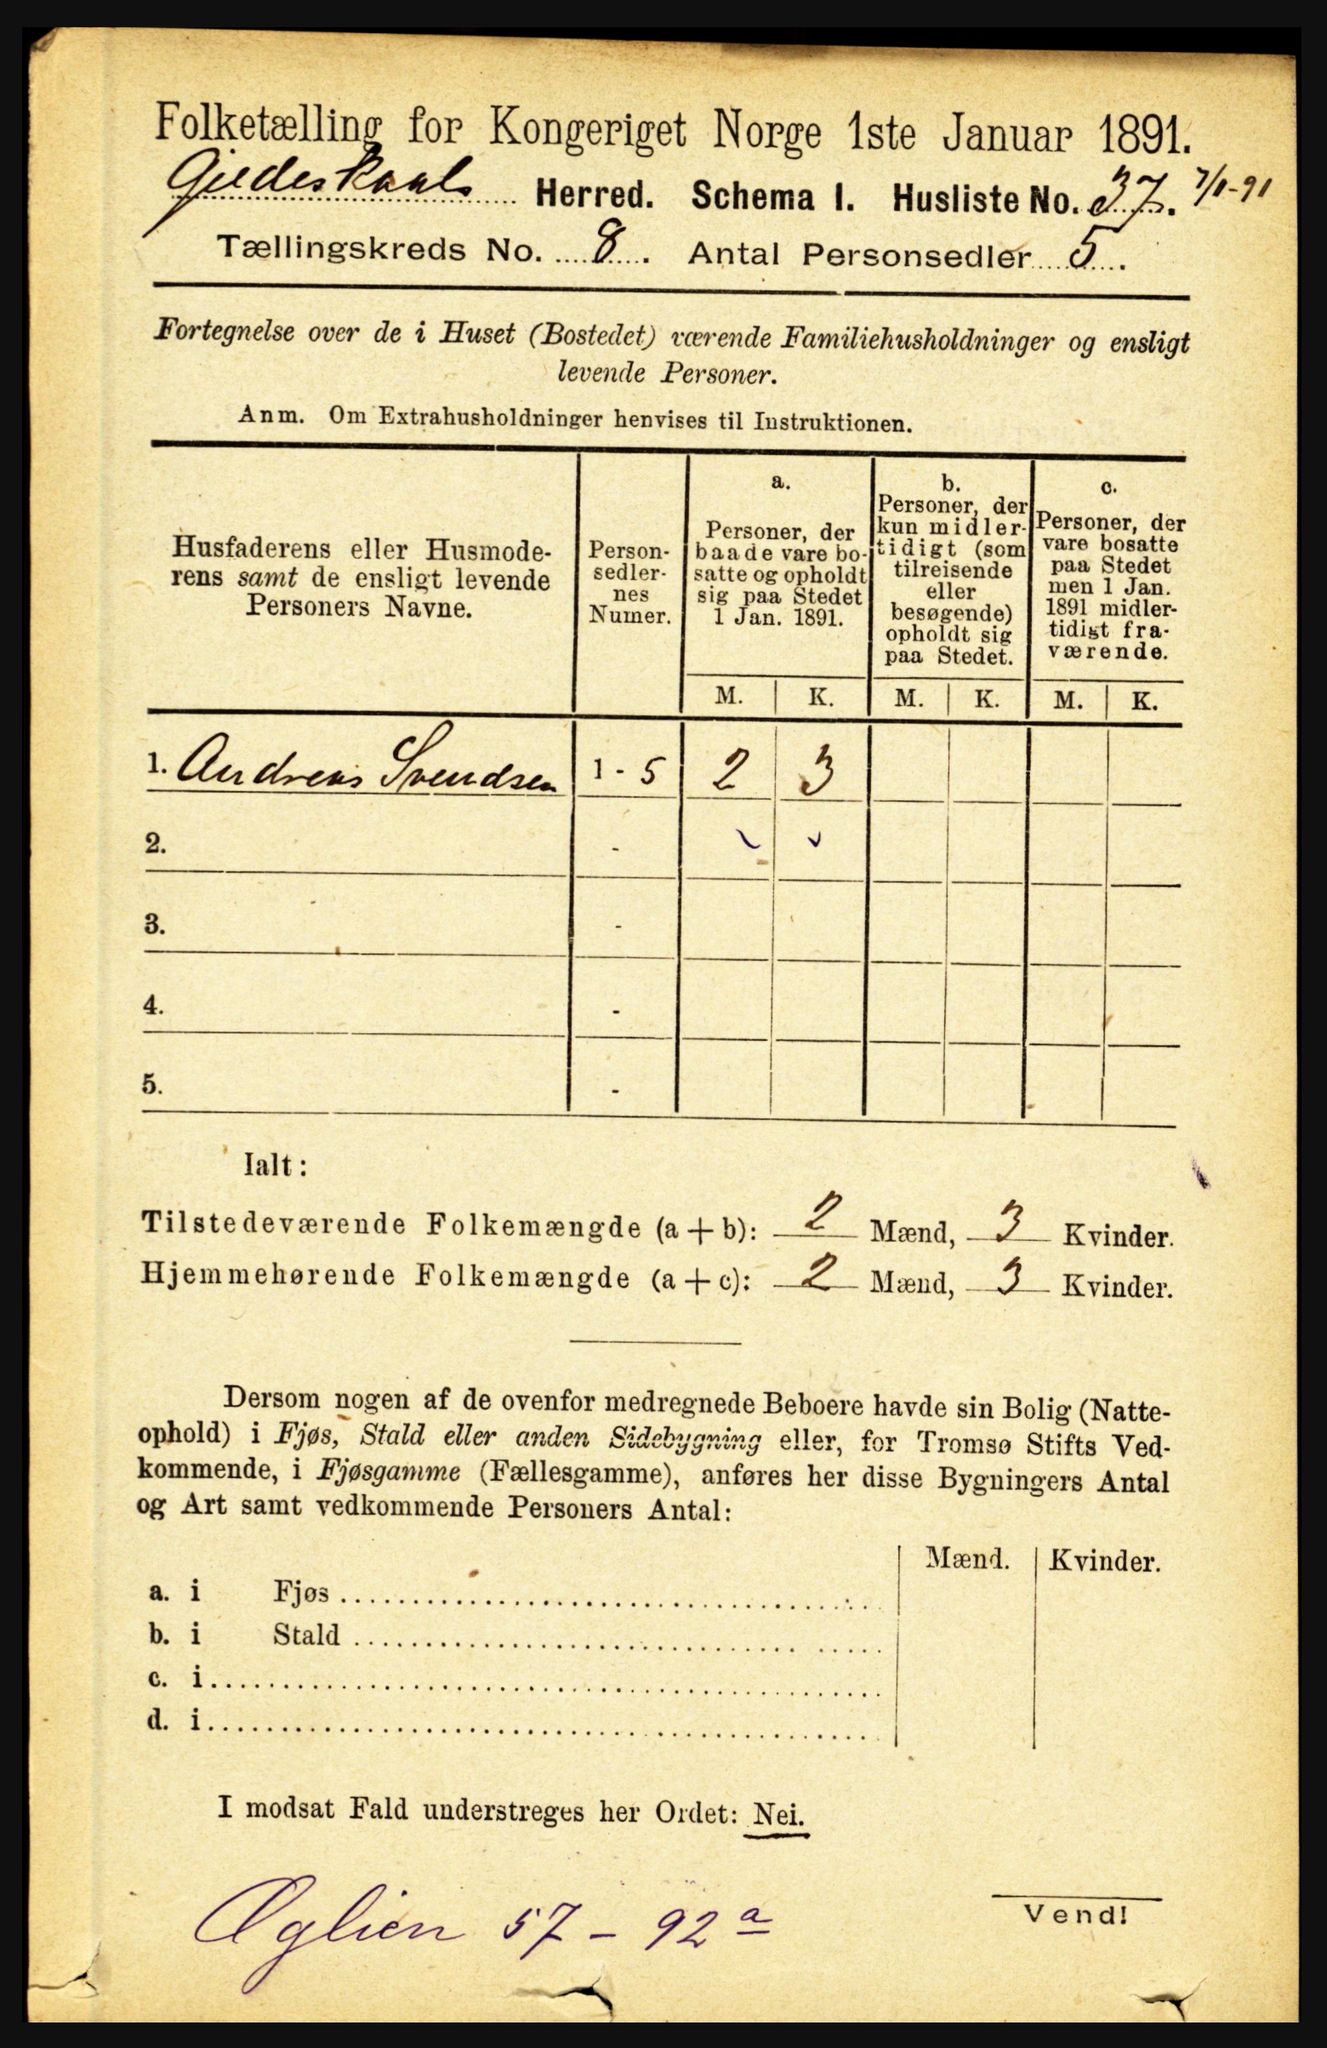 Folketælling for Kongeriget Norge 1ste Januar 1891.
Gildeskaals Herred. Schema I. Husliste No. 37. 7/1-91
Tællingskreds No. 8. Antal Personsedler 5.
Fortegnelse over de i Huset (Bostedet) værende Familiehusholdninger og ensligt
levende Personer.
Anm. Om Extrahusholdninger henvises til Instruktionen.
Husfaderens eller Husmode-
rens samt de ensligt levende
Personers Navne.
Person-
sedler-
nes
Numer.
a.
Personer, der
baade vare bo-
satte og opholdt
sig paa Stedet
1 Jan. 1891.
b.
Personer, der
kun midler-
tidigt (som
tilreisende
eller
besøgende)
opholdt sig
paa Stedet.
c.
Personer, der
vare bosatte
paa Stedet
men 1 Jan.
1891 midler-
tidigt fra-
værende.
M. K. M. K. M. K.
1. Andreas Svendsen 1 - 5 2 3
2. -
3. -
4. -
5. -
Ialt:
Tilstedeværende Folkemængde (a + b): 2 Mænd, 3 Kvinder.
Hjemmehørende Folkemængde (a + c): 2 Mænd, 3 Kvinder.
Dersom nogen af de ovenfor medregnede Beboere havde sin Bolig (Natte-
ophold) i Fjøs, Stald eller anden Sidebygning eller, for Tromsø Stifts Ved-
kommende, i Fjøsgamme (Fællesgamme), anføres her disse Bygningers Antal
og Art samt vedkommende Personers Antal:
Mænd. Kvinder.
a. i Fjøs
b. i Stald
c. i
d. i
I modsat Fald understreges her Ordet: Nei.
Øglien 57 - 92 a
Vend!